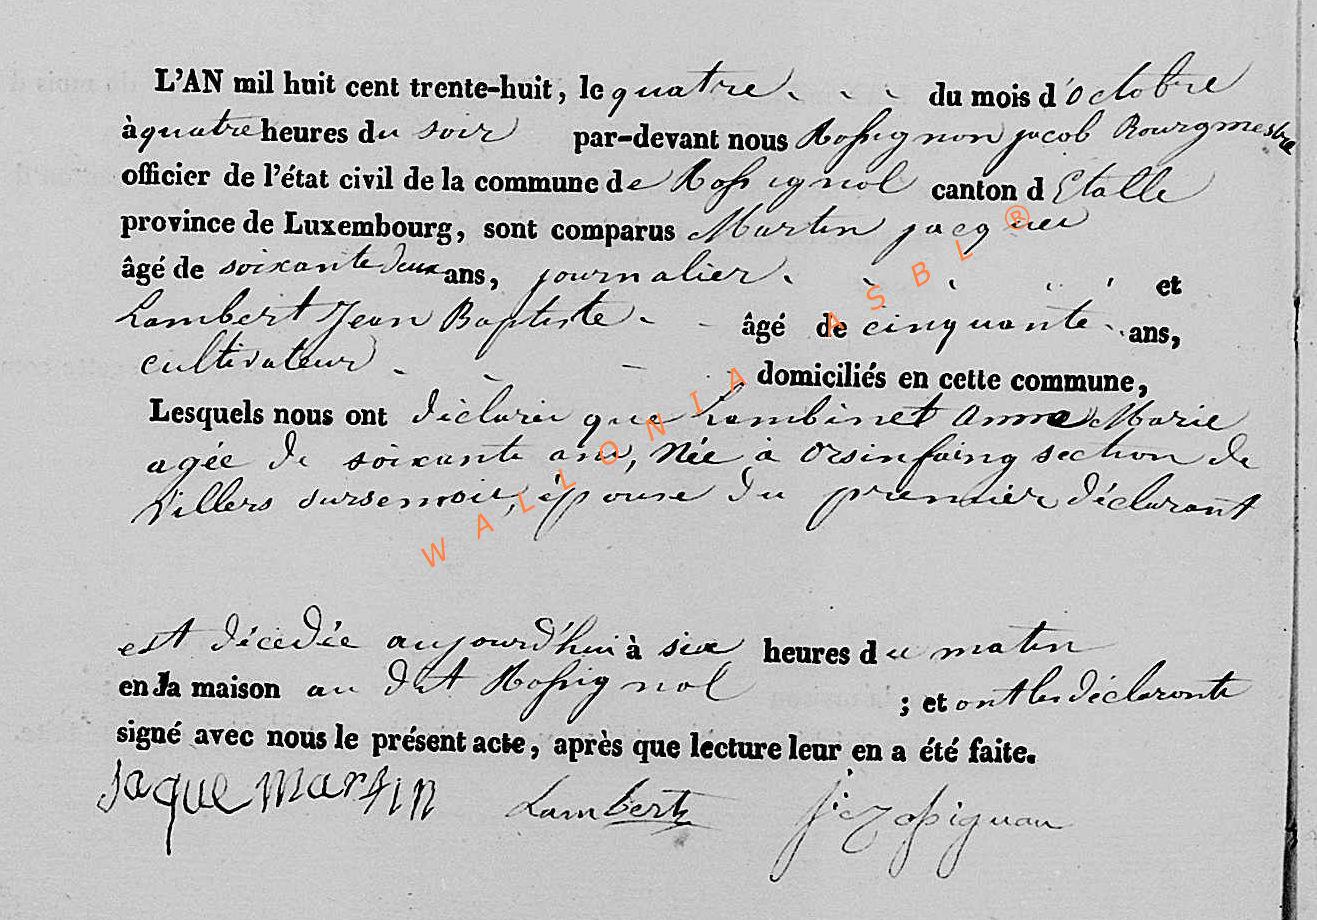 L'AN mil huit cent trente-huit, le quatre du mois d'octobre
à quatre heures du soir par-devant nous Rossignon jacob Bourgmestre
officier de l'état civil de la commune de Rossignol canton d Etalle
province de Luxembourg, sont comparus Martin jacques
âgé de soixante deux ans, journalier et
Lambert Jean Baptiste âgé de cinquante ans,
cultivateur domiciliés en cette commune,
Lesquels nous ont déclaré que Lambinet Anne Marie
agée de soixante ans, Née à Orsinfaing section de
Villers sursemois, épouse du premier déclarant
est décédée aujourd'hui à six heures du matin
en la maison au dit Rossignol ; et ont les déclarants
signé avec nous le présent acte, après que lecture leur en a été faite.
jaque martin Lambert
WALLONIA ASBL ®